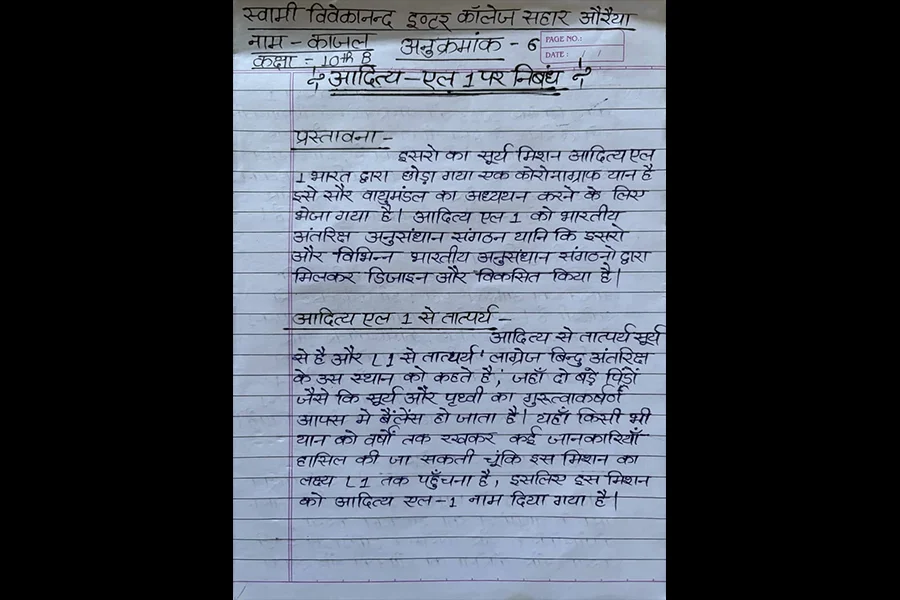 स्वामी विवेकानन्द इण्टर कॉलेज सहार औरैया
नाम - काजल अनुक्रमांक - 6
PAGE NO.:
DATE:
कक्षा - 10th B
आदित्य-एल 1 पर निबंध
प्रस्तावना -
इसरो का सूर्य मिशन आदित्य एल
1 भारत द्वारा छोड़ा गया एक कोरोनाग्राफ यान है
इसे सौर वायुमंडल का अध्ययन करने के लिए
भेजा गया है। आदित्य एल 1 को भारतीय
अंतरिक्ष अनुसंधान संगठन यानि कि इसरो
और विभिन्न भारतीय अनुसंधान संगठनो द्वारा
मिलकर डिजाइन और विकसित किया है।
आदित्य एल 1 से तात्पर्य -
आदित्य से तात्पर्य सूर्य
से है और L1 से तात्पर्य ' लाग्रेज बिन्दु अंतरिक्ष
के उस स्थान को कहते है, जहाँ दो बड़े पिंडों
जैसे कि सूर्य और पृथ्वी का गुरुत्वाकर्षण
आपस मे बैंलेंस हो जाता है। यहाँ किसी भी
यान को वर्षों तक रखकर कई जानकारियाँ
हासिल की जा सकती चूंकि इस मिशन का
लक्ष्य L1 तक पहुँचना है, इसलिए इस मिशन
को आदित्य एल-1 नाम दिया गया है।